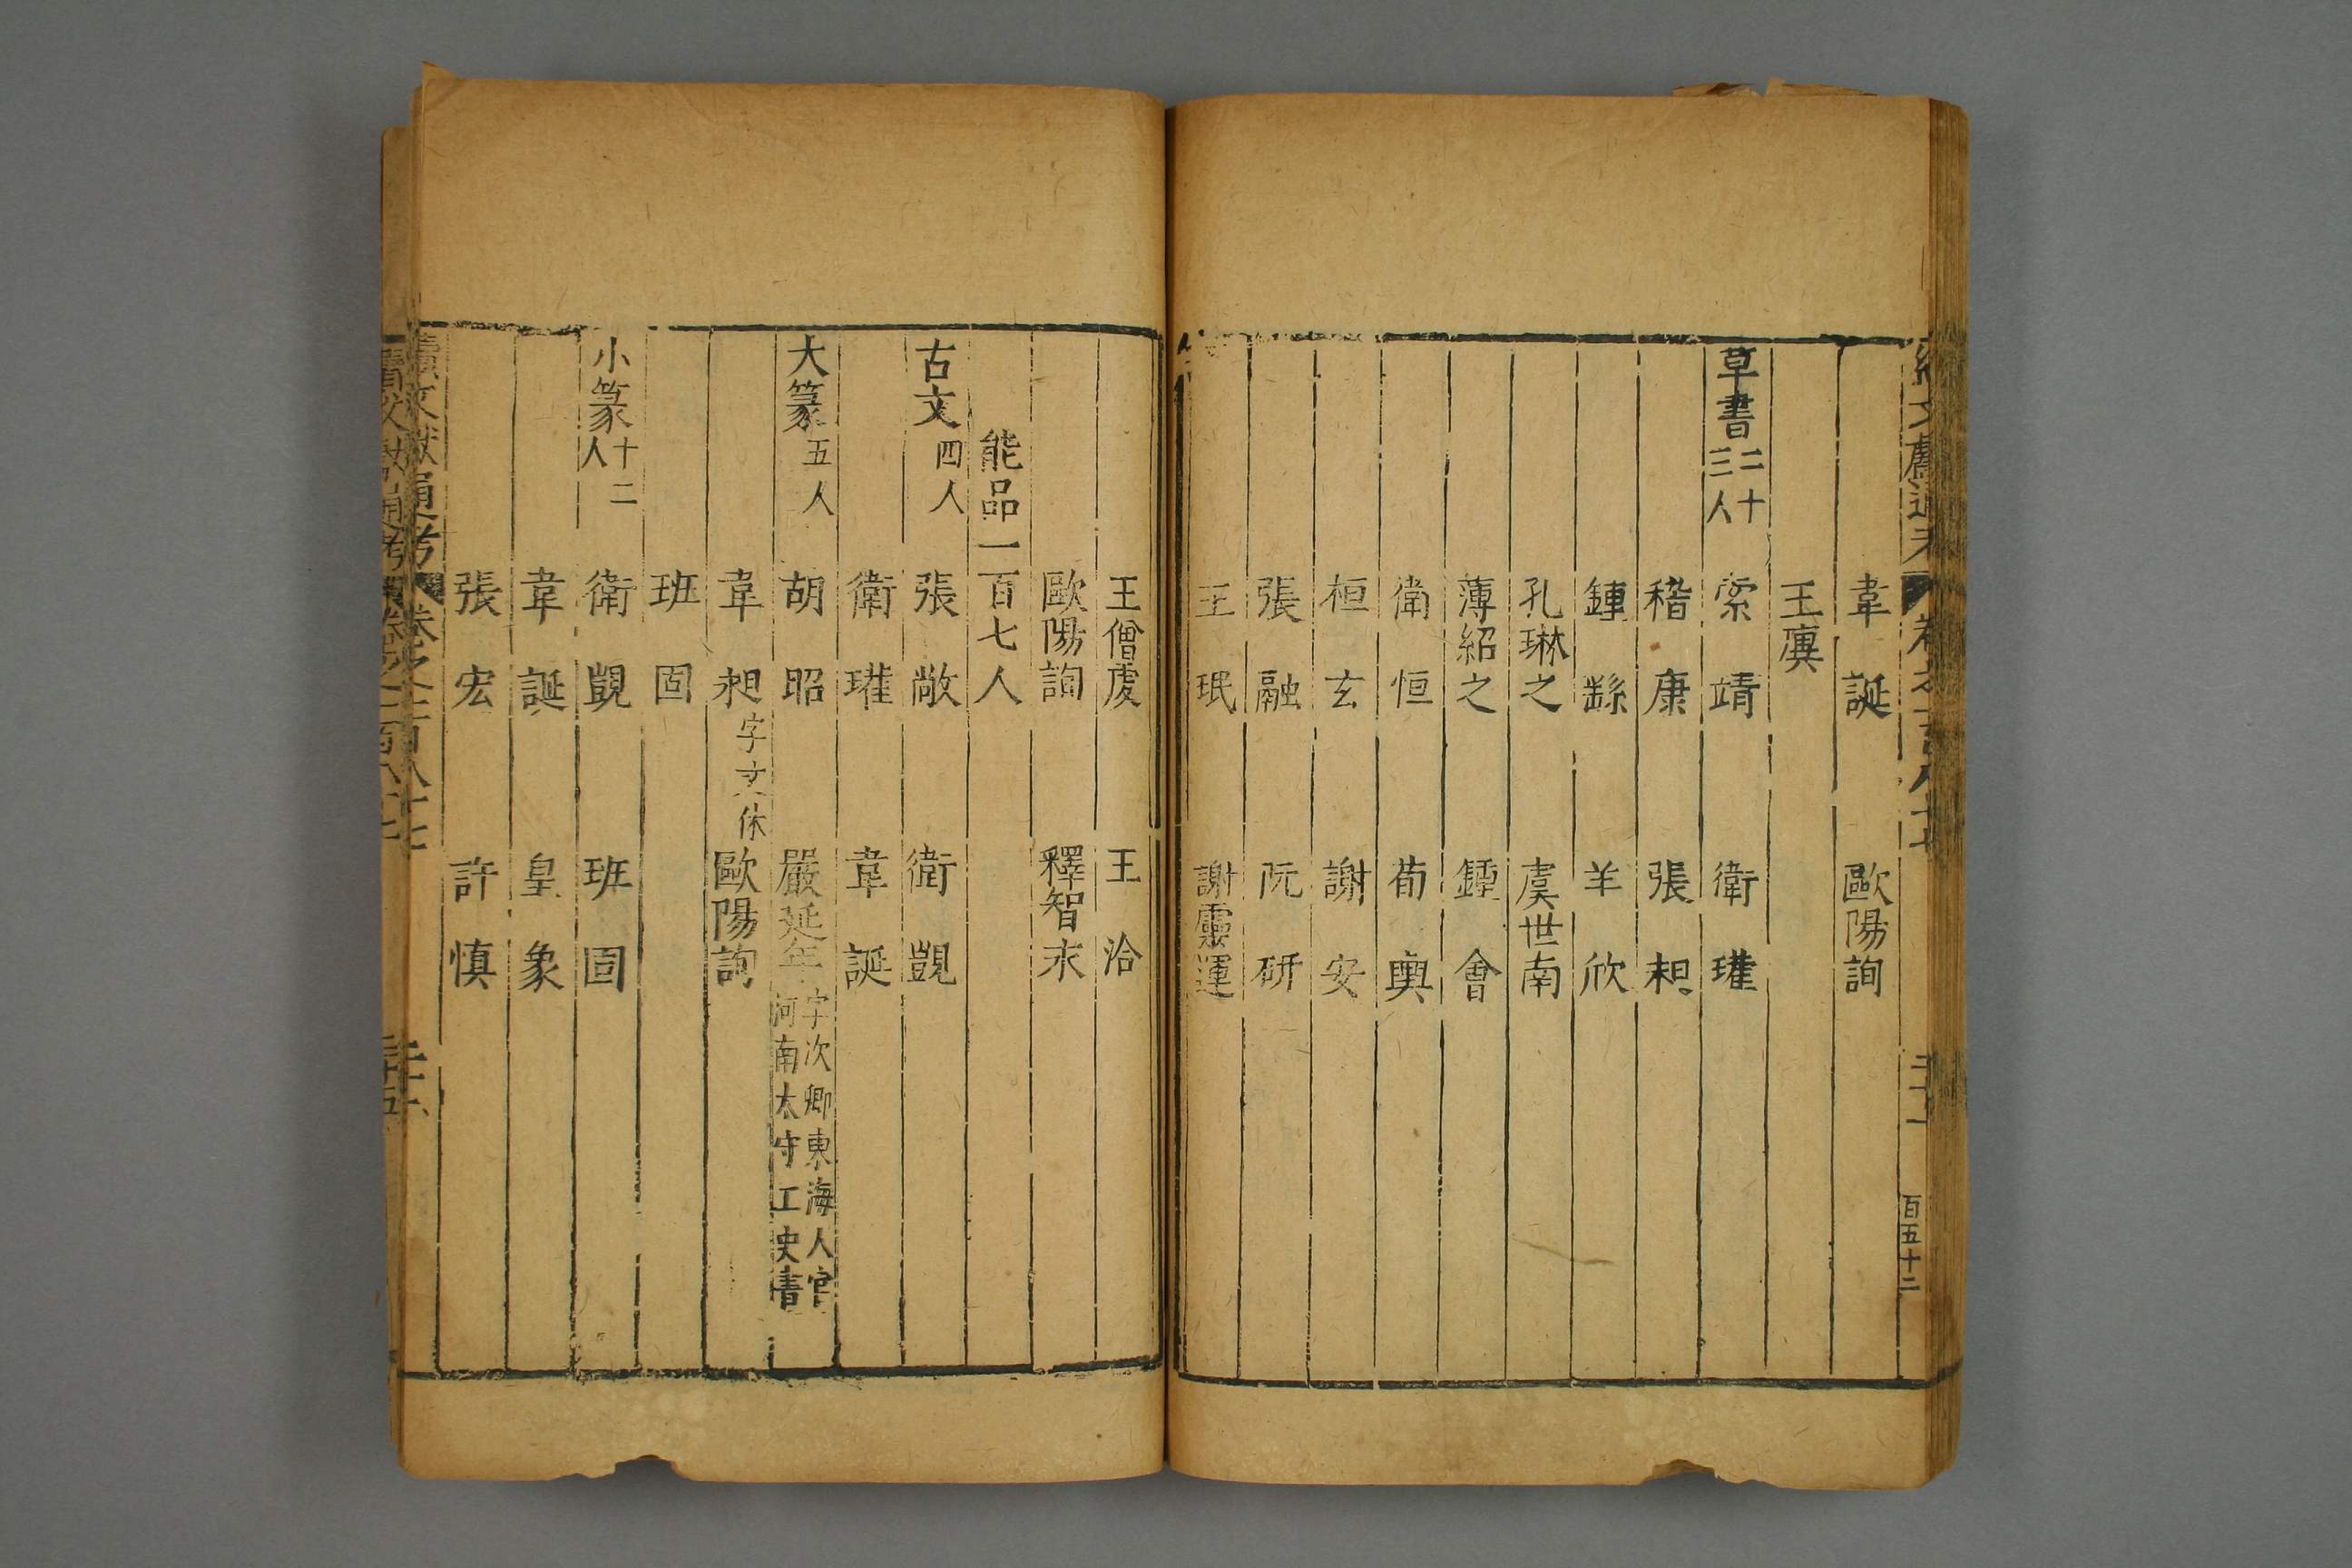 韋誕 歐陽詢
王廙
草書二十三人 索靖 衛瓘
稽康 張昶
鍾繇 羊欣
孔琳之 虞世南
薄紹之 鍾會
衛恒 荀輿
桓玄 謝安
張融 阮研
王珉 謝靈運
百五十二
王僧虔 王洽
歐陽詢 釋智永
能品一百七人
古文四人 張敞 衛覬
衛瓘 韋誕
大篆五人 胡昭 嚴延年字次卿東海人官河南太守工史書
韋昶字文休 歐陽詢
班固
小篆十二人 衛覬 班固
韋誕 皇象
張宏 許慎
續文獻通考 卷之一百八十七